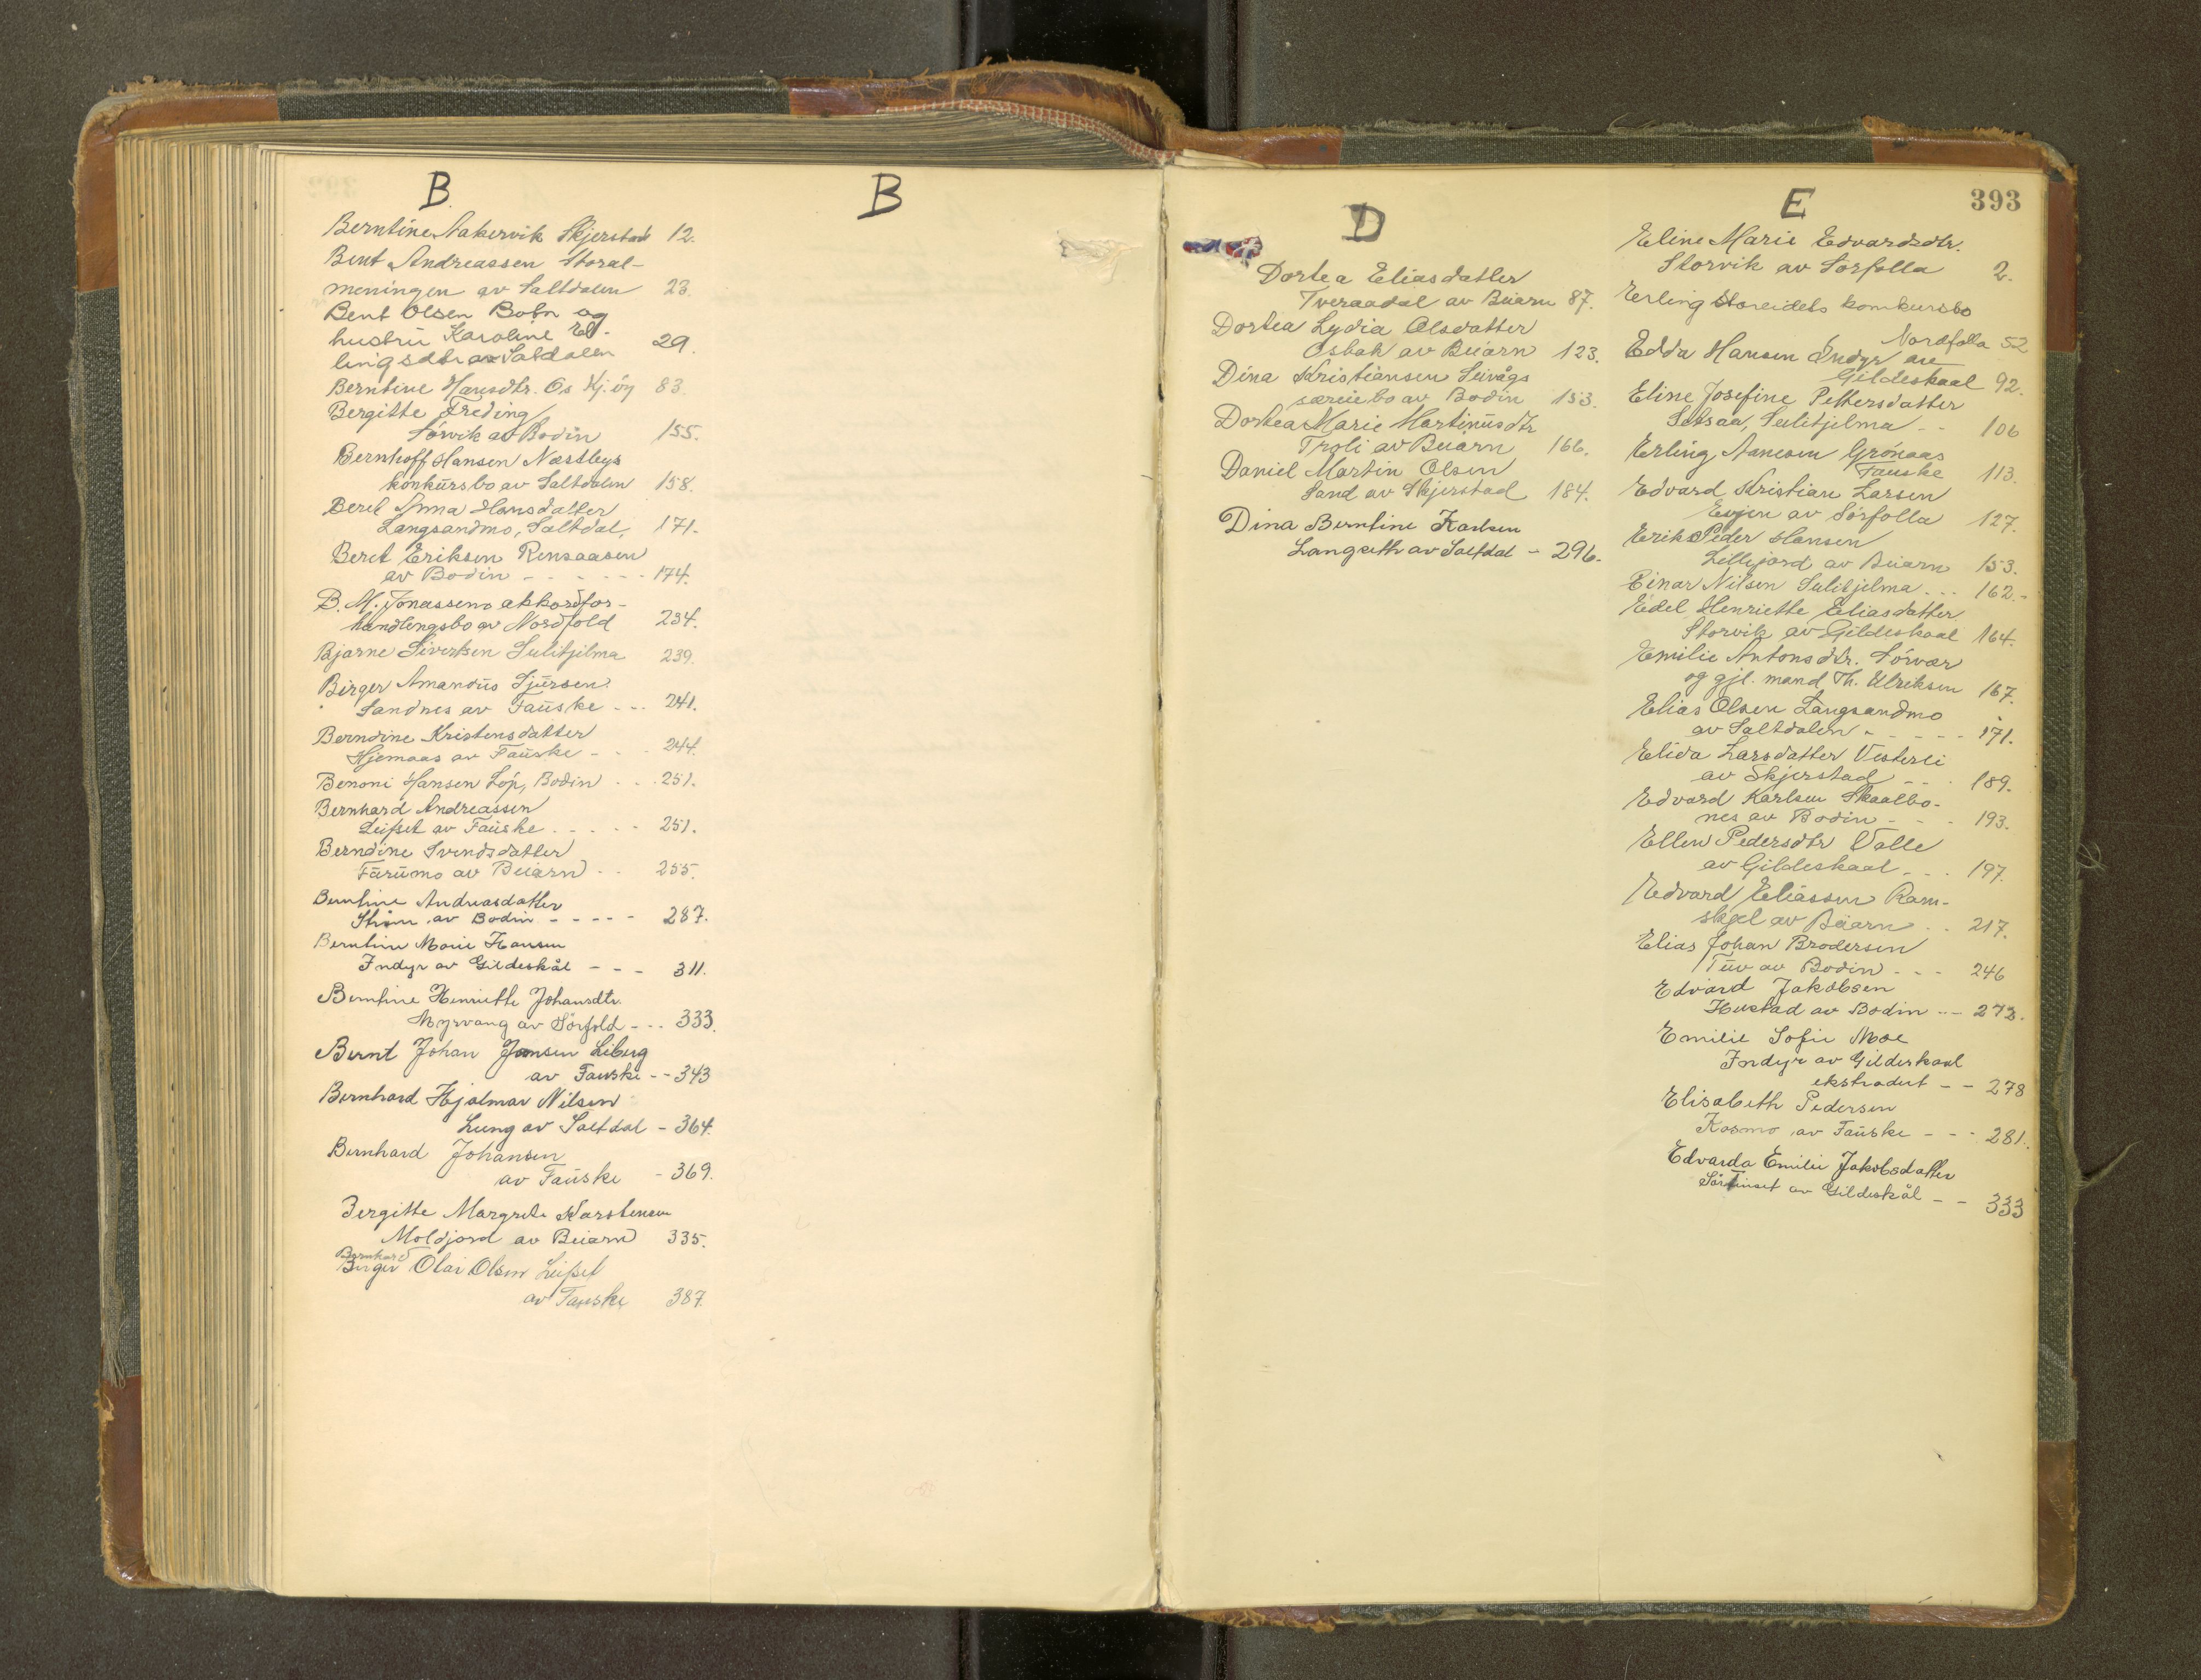 B.
Berntine Aakervik Skjerstad 12.
Bent Andreassen Storal-
meningen av Saltdalen 23.
Bent Olsen Botn og
hustru Karoline El-
lingsdtr av Saltdalen 29.
Berntine Hansdtr. Os Kj.øy 83.
Bergitte Freding
Sørvik av Bodin 155.
Bernhoff Hansen Næstbys
konkursbo av Saltdalen 158.
Beret Anna Hansdatter
Langsandmo, Saltdal, 171.
Beret Eriksen Rensaasen
av Bodin - - - - - - 174.
B. M. Jonassens akkordfor-
handlingsbo av Nordfold 234.
Bjarne Sivertsen Sulitjelma 239.
Birger Amandus Sjursen
Sandnes av Fauske - - - 241.
Berndine Kristensdatter
Hjemaas av Fauske - - - 244.
Benoni Hansen Løp, Bodin - - - 251.
Bernhard Andreassen
Leifset av Fauske - - - - - 251.
Berndine Svendsdatter
Furumo av Beiarn - - 255.
Berntine Andreasdatter
Strøm av Bodin - - - - - 287.
Berntine Marie Hansen
Indyr av Gildeskål - - - 311.
Berntine Henriette Johansdtr.
Myrvang av Sørfold - - - 333.
Bernt Johan Jonsen Liberg
av Fauske - - 343
Bernhard Hjalmar Nilsen
Lung av Saltdal - 364.
Bernhard Johansen
av Fauske - 369.
Bergitte Margrete Karstensen
Moldjord av Beiarn 335.
Bernhard
Birger Olai Olsen Leifset
av Fauske 387.
B
D
Dortea Eliasdatter
Tveraadal av Beiarn 87.
Dortea Lydia Olsdatter
Osbak av Beiarn 123.
Dina Kristiansen Seivågs
særeiebo av Bodin 153.
Dortea Marie Martinusdtr
Troli av Beiarn 166.
Daniel Martin Olsen
Sand av Skjerstad 184.
Dina Berntine Karlsen
Langseth av Saltdal - 296.
E
393
Eline Marie Edvardsdtr.
Storvik av Sørfolla 2.
Erling Storeidets konkursbo
Nordfolla 52
Edda Hansen Indyr av
Gildeskaal 92.
Eline Josefine Pettersdatter
Setsaa, Sulitjelma - - 106
Erling Aanesen Grønaas
Fauske 113.
Edvard Kristian Larsen
Evjen av Sørfolla 127.
Erik Peder Hansen
Lillejord av Beiarn 153.
Einar Nilsen Sulitjelma - - - 162.-
Edel Henriette Eliasdatter
Storvik av Gildeskaal 164.
Emilie Antonsdtr. Sørvær
og gjl. mand Th. Ulriksen 167.
Elias Olsen Langsandmo
av Saltdalen - - - - - 171.
Elida Larsdatter Vesterli
av Skjerstad - - - 189.
Edvard Karlsen Skaalbo-
nes av Bodin - - - 193.
Ellen Pedersdtr Valle
av Gildeskaal - - - 197.
Edvard Eliassen Ram-
skjel av Beiarn - - 217.
Elias Johan Brodersen
Tuv av Bodin - - - 246
Edvard Jakobsen
Hustad av Bodin - - - 273.
Emilie Sofie Moe
Indyr av Gildeskaal
ekstradert - - 278
Elisabeth Pedersen
Kosmo av Fauske - - - 281.
Edvarda Emilie Jakobsdatter
Sørfinset av Gildeskål - - 333